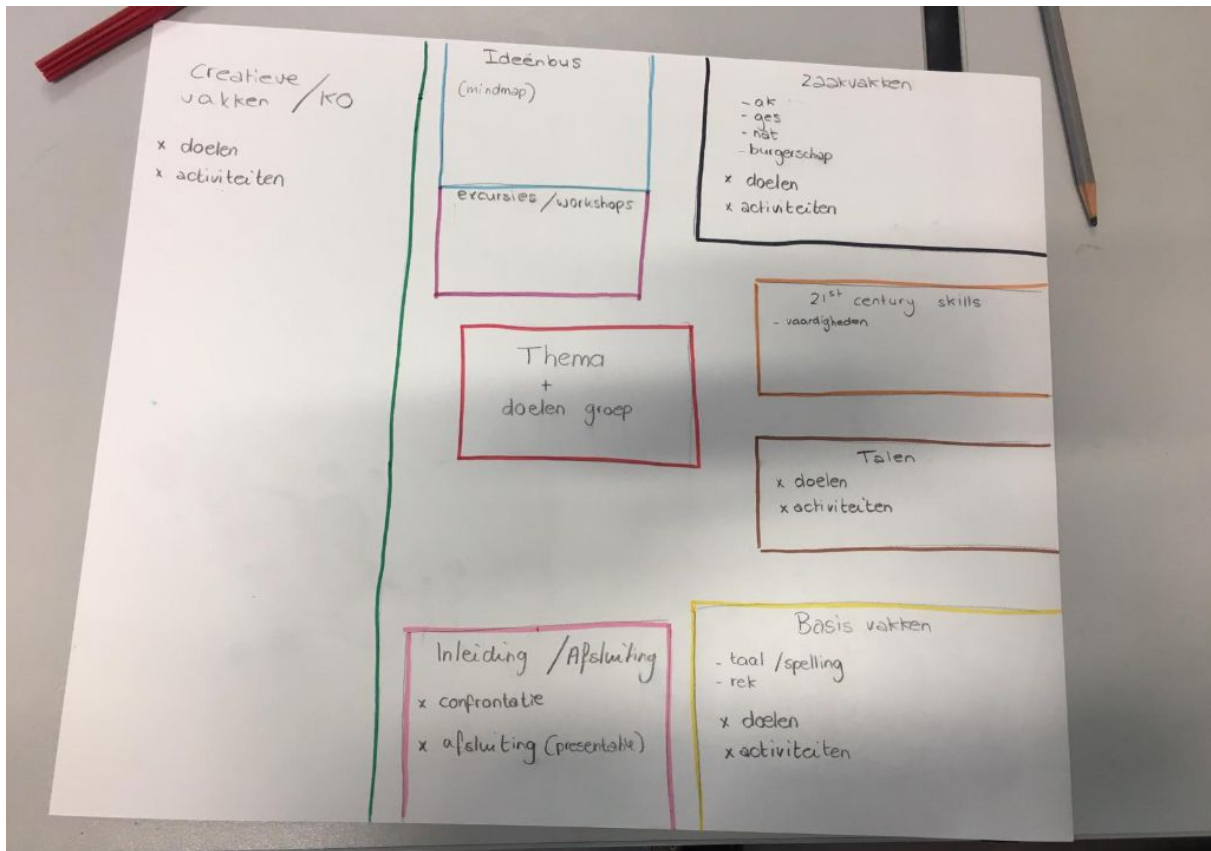 Creatieve
vakken / KO
x doelen
x activiteiten
Ideénbus
(mindmap)
excursies / workshops
Thema
+
doelen groep
Inleiding / Afsluiting
x confrontatie
x afsluiting (presentatie)
Zaakvakken
- ak
- ges
- nat
- burgerschap
x doelen
x activiteiten
21st century skills
- vaardigheden
Talen
x doelen
x activiteiten
Basis vakken
- taal / spelling
- rek
x doelen
x activiteiten